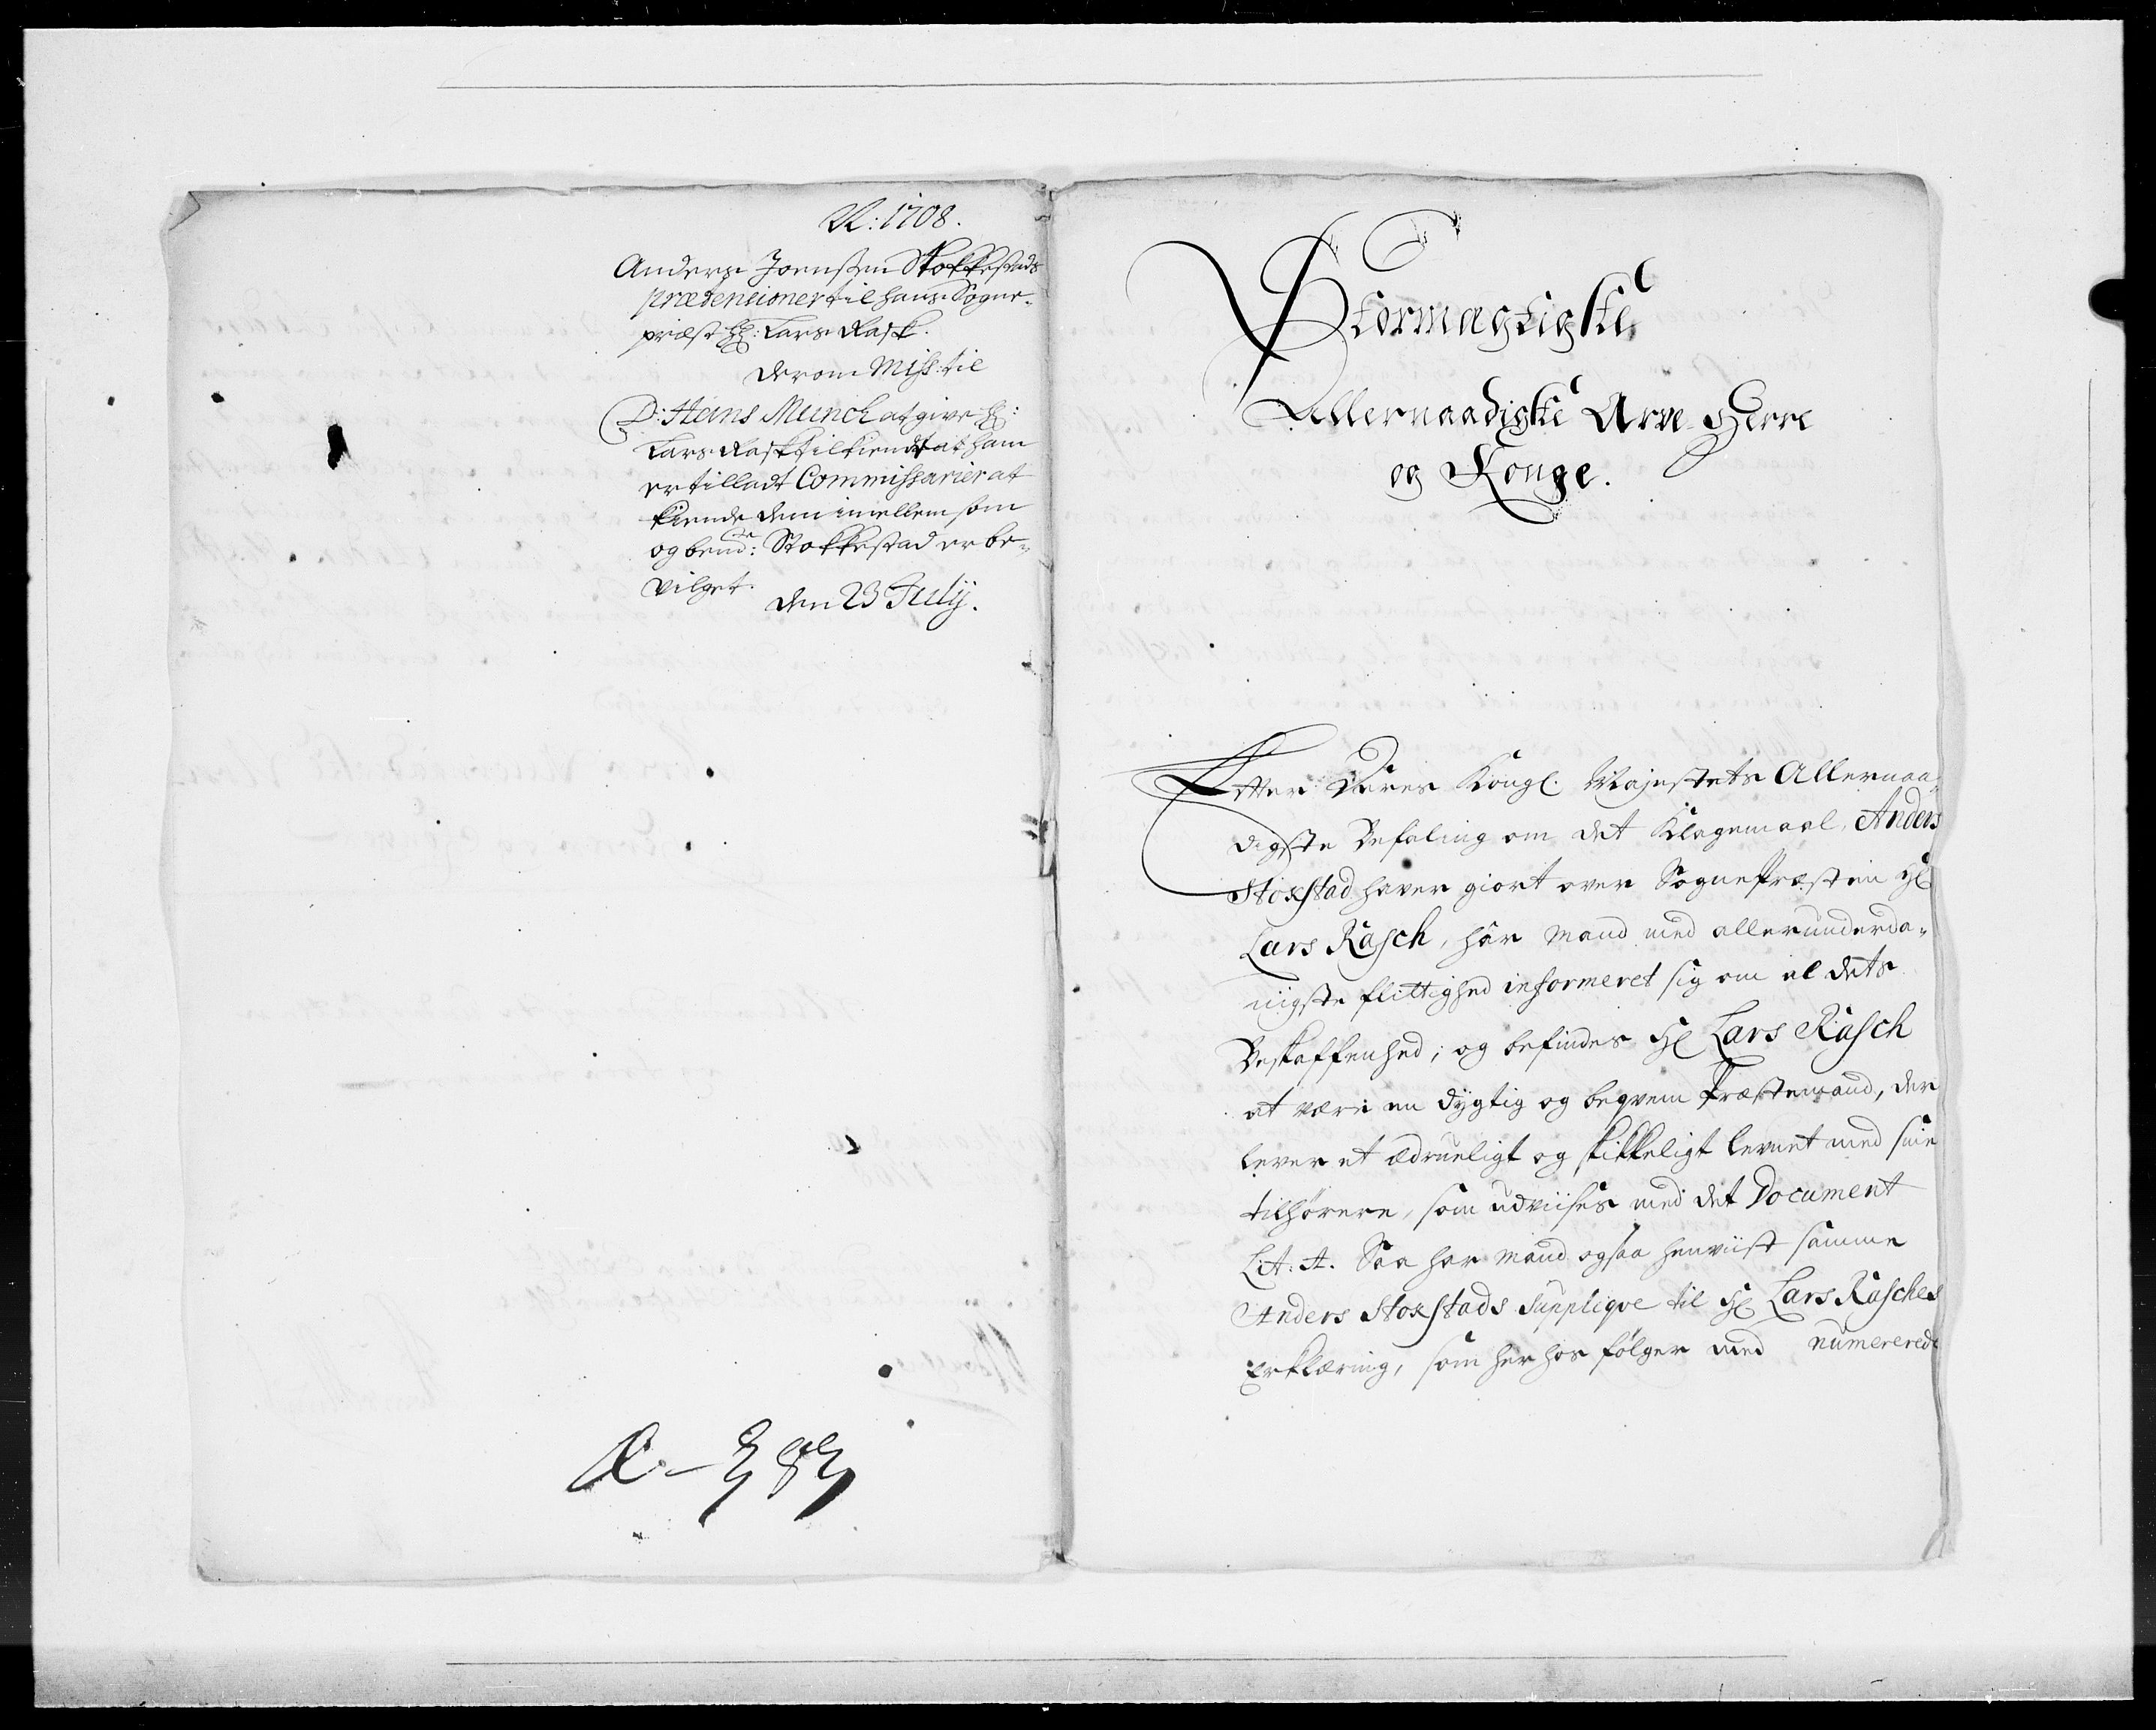 A<sup>o</sup>: 1708.
Anders Joensøn Stokkestads
prætensioner til hans Sogne-
præst H<sup>r</sup>: Lars Rask.
derom Miss: til
D: Hans Munch at give H<sup>r</sup>:
Lars Rask tilkiende at ham
er tilladt Commissarier at
kiende dem imellem som
og bem<sup>te</sup>: Stokkestad er be-
vilget.
den 23 July.
Stormægtigste
Allernaadigste Arve-Herre
og Konge.
Effter Deres Kongl. Majestets Allernaa-
digste Befaling om det Klagemaal, Anders
Stoxstad haver giort over Sognepræsten H<sup>r</sup>
Lars Rasch, hâr mand med allerunderda-
nigste flittighed informeret sig om al dets
Beskaffenhed; og befindes H<sup>r</sup> Lars Rasch
at være en dygtig og beqvem Præstemand, der
lever et ædrueligt og skikkeligt levnet med sine
tilhørere, som udviises med det Document
Lit: A. Saa har mand ogsaa henviist samme
Anders Stoxstads Suppliqve til H<sup>r</sup> Lars Rasches
Erklæring, som her hos følger med numererede